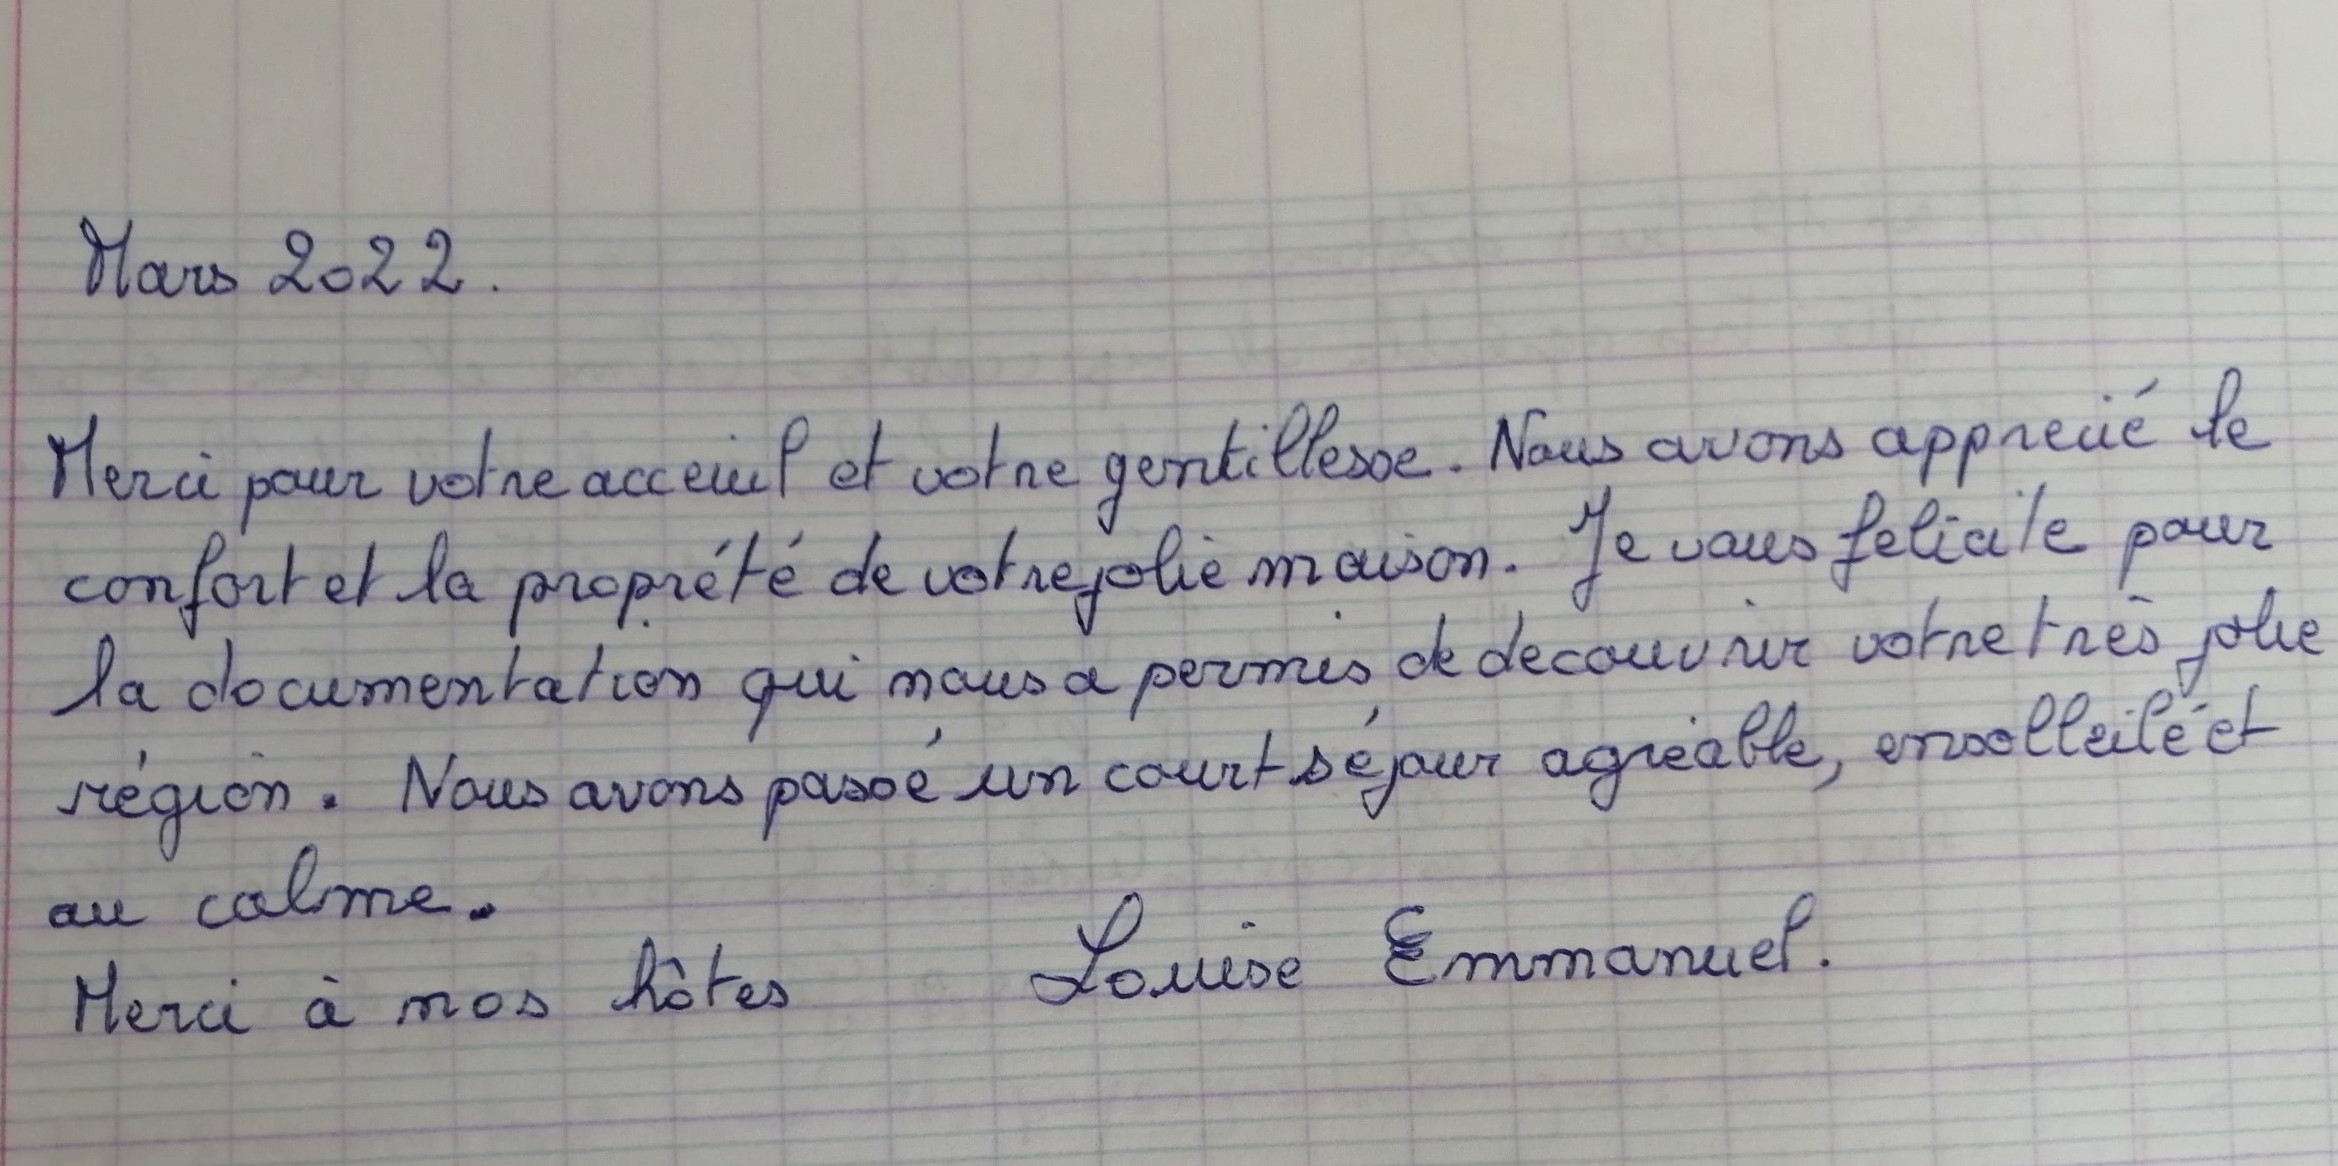 Mars 2022.
Merci pour votre acceuil et votre gentillesse. Nous avons apprecié le
confort et la propriété de votre jolie maison. Je vous felicite pour
la documentation qui nous a permis de decouvrir votre très jolie
région. Nous avons passé un court séjour agréable, ensolleilé et
au calme.
Merci à nos hôtes Louise Emmanuel.